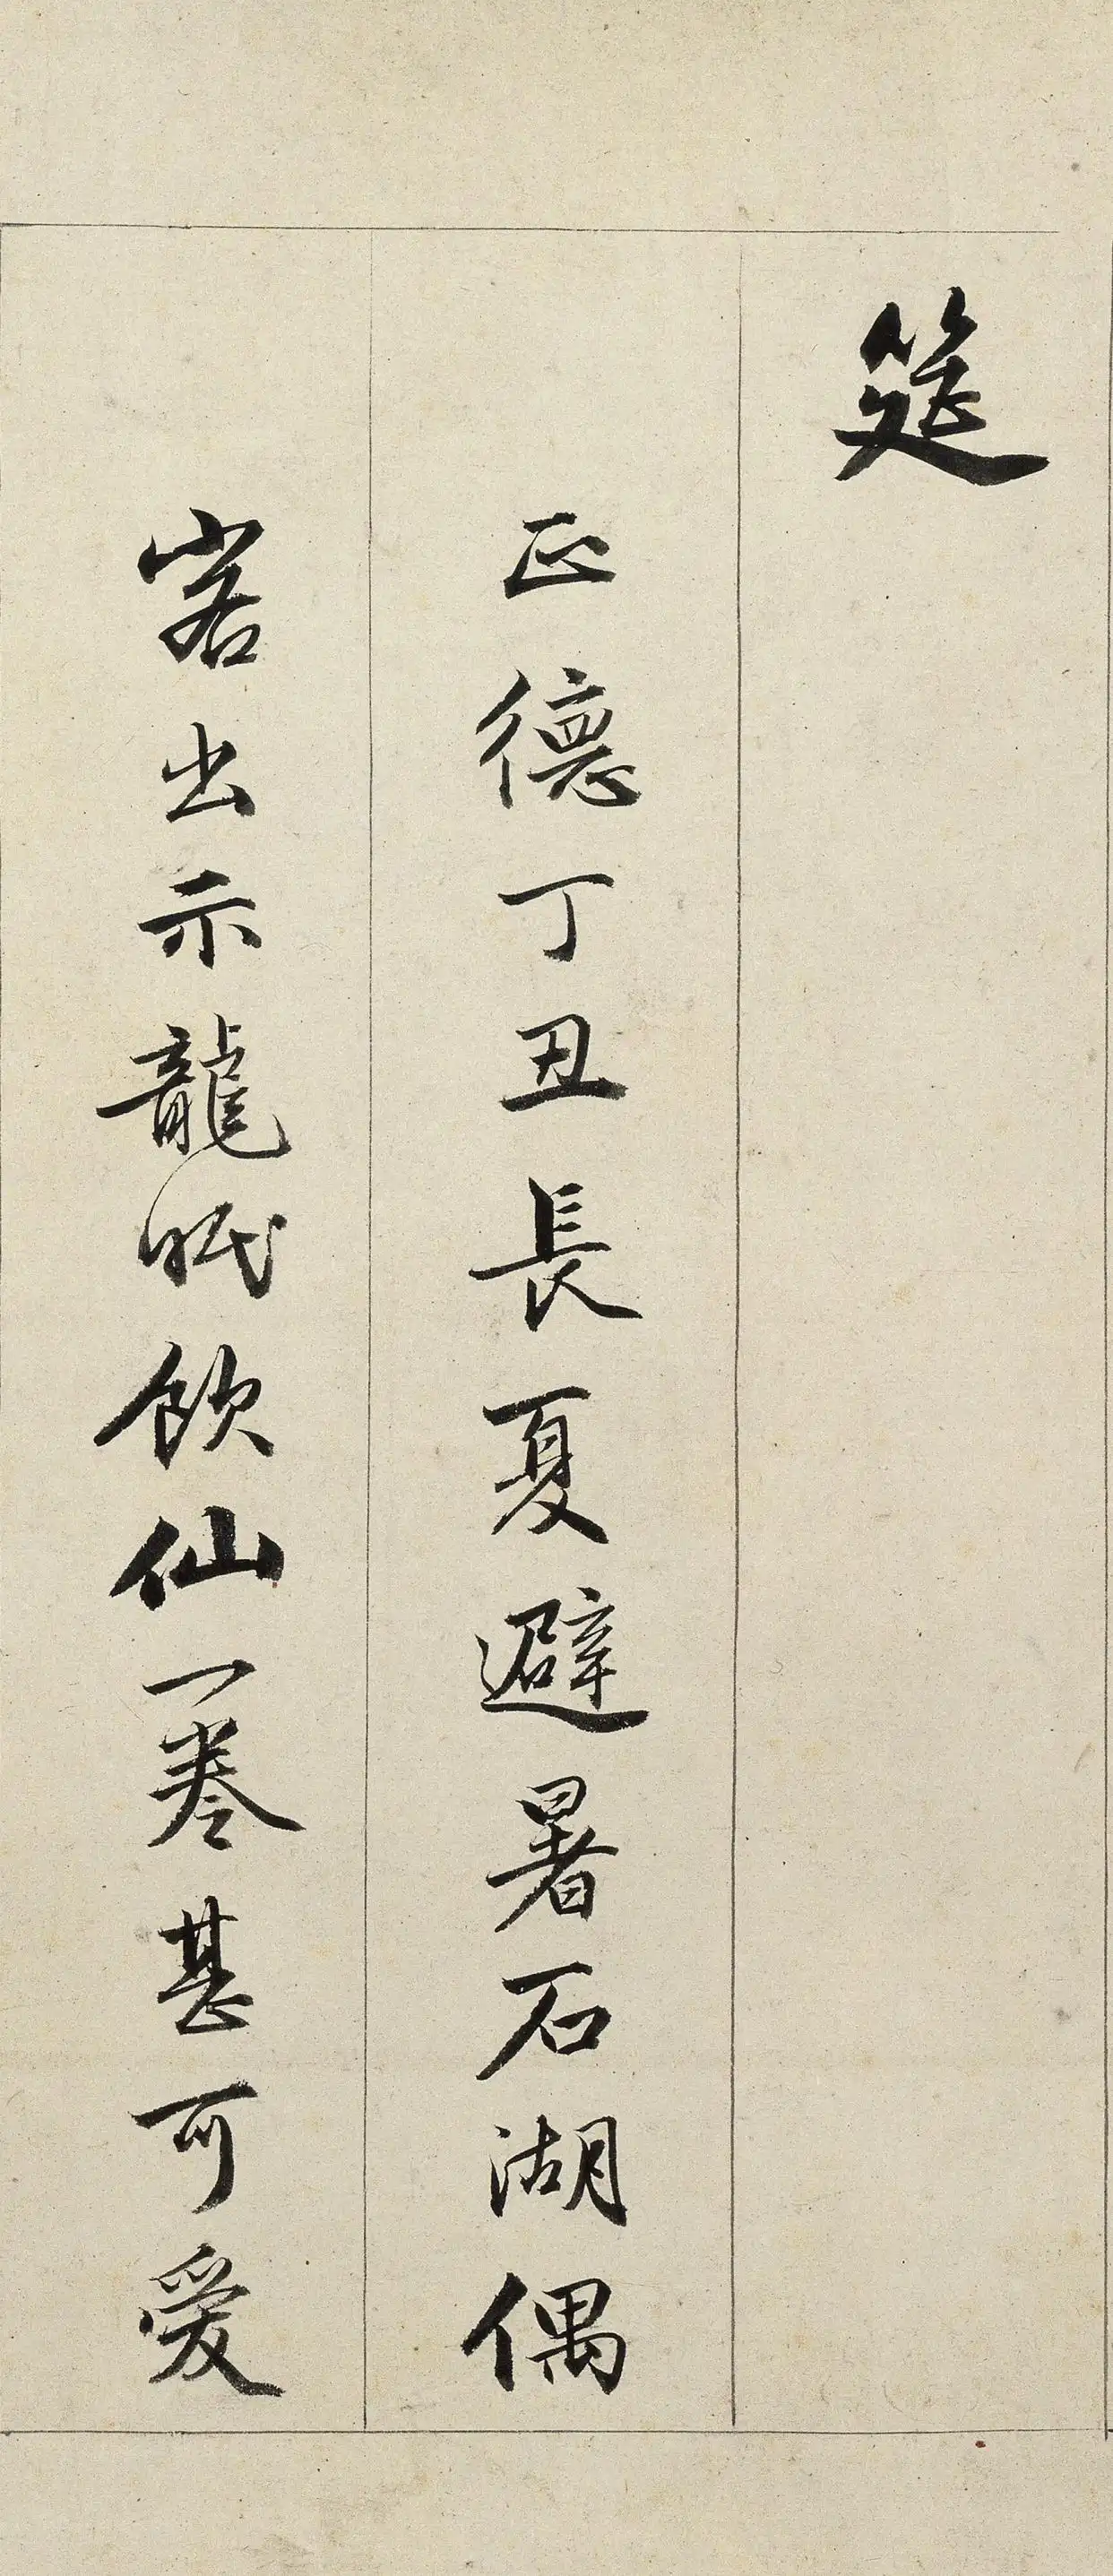 筵
正德丁丑長夏避暑石湖偶
客出示龍眠飲仙一卷甚可愛